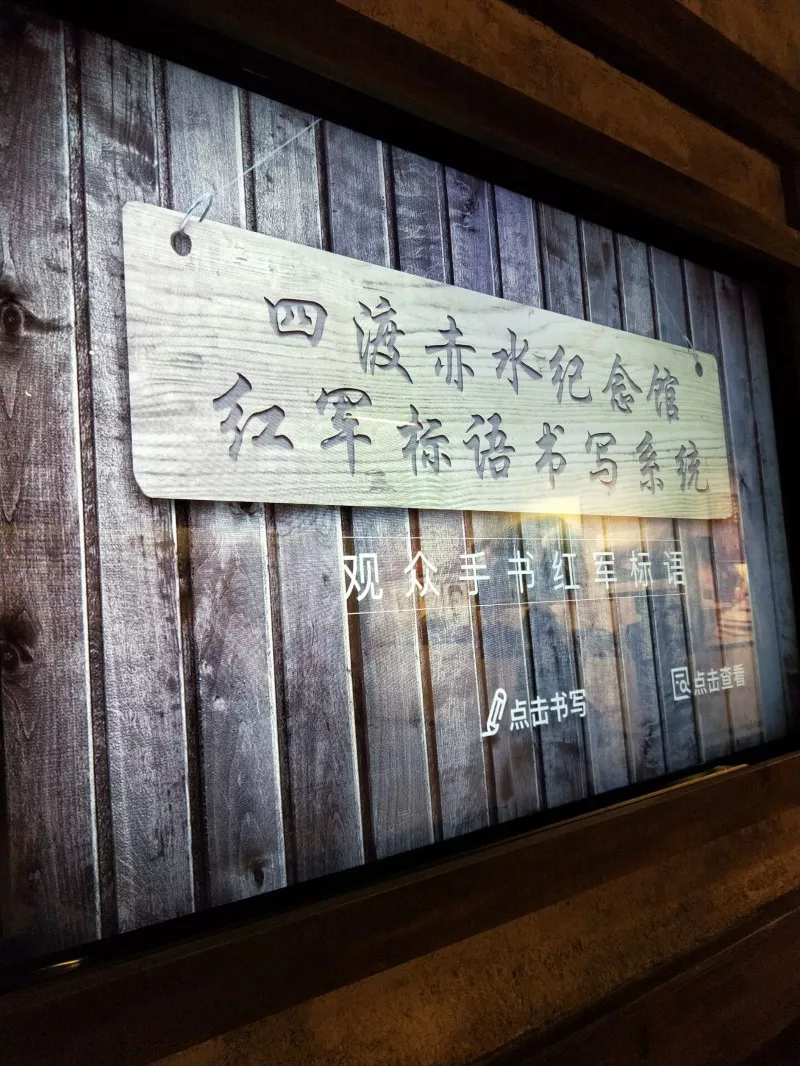 四渡赤水纪念馆
红军标语书写系统
观众手书红军标语
点击书写
点击查看